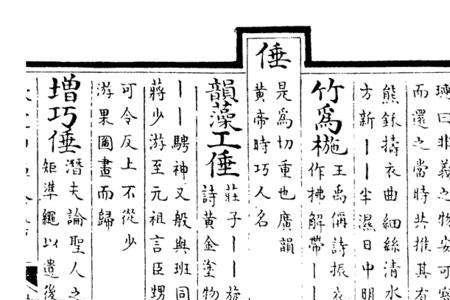 璁曰非義之物安可
而還之當時共推其
熊鉌擣衣曲細絲清水
方新丨丨半濕日中
竹爲椸王禹偁詩振衣
作拂解帶丨丨
倕
是爲切重也廣韻
黄帝時巧人名
韻藻工倕莊子丨丨旋
詩黄金塗物
丨丨騁神又般與班同
蔣少游至元祖言臣甥
可令反上不從少
游果圖畫而歸
增巧倕潛夫論聖人之
矩準繩以遺後